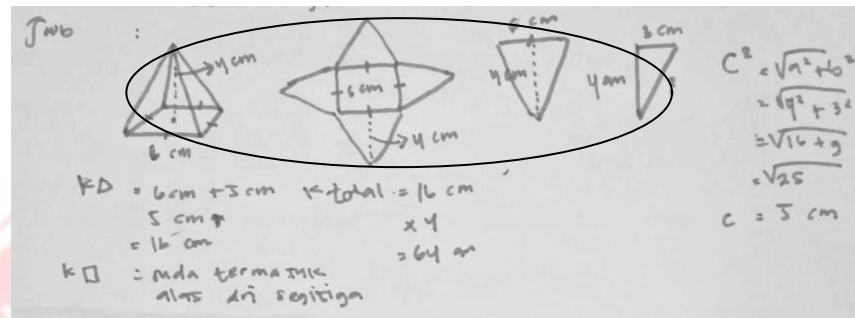 Jwb :
4 cm
6 cm
6 cm
4 cm
6 cm
4 cm
3 cm
4 cm
C² = √a² + b²
= √4² + 3²
= √16 + 9
= √25
C = 5 cm
K△ = 6 cm + 5 cm
5 cm +
= 16 cm
K total = 16 cm
x 4
= 64 cm
K□ = sudah termasuk
alas dri segitiga